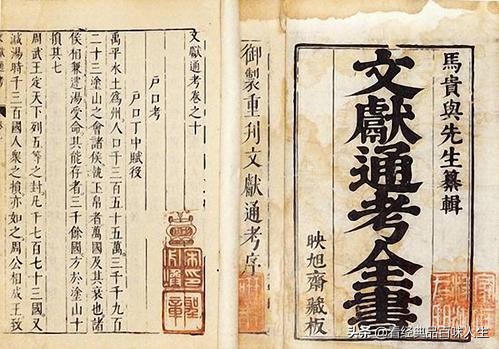 馬貴與先生纂輯
文獻通考全書
映旭齋藏板
御製重刊文獻通考序
文獻通考卷之十
戶口考
戶口丁中賦役
禹平水土爲州人口千三百五十五萬三千九百
二十三塗山之會諸侯執玉帛者萬國及其衰也諸
侯相兼逮湯受命其能存者三千餘國方於塗山十
損其七
周武王定天下列五等之封凡千七百七十三國又
減湯時千三百國人衆之損亦如之周公相成王致
头条 @看经典品百味人生